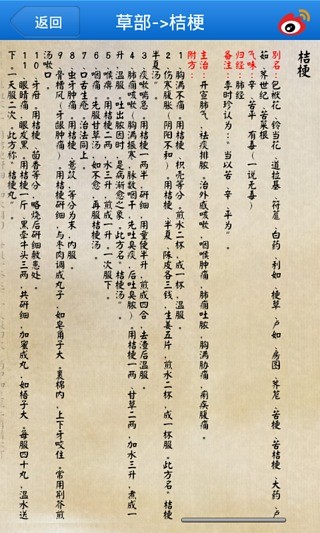 返回
草部->桔梗
桔梗
别名：包袱花、铃当花、道拉基、符蔰、白药、利如、梗草、卢如、房图、荠苨、苦梗、苦桔梗、大药、卢
茹、荠世纪、苦菜根
气味：辛、苦平、有毒（一说无毒）
归经：肺经
备注：李时珍认为："当以苦、辛、平为。"
主治：开宣肺气、祛痰排脓、治外感咳嗽、咽喉肿痛、肺痈吐脓、胸满胁痛、痢疾腹痛。
附方：
1、胸满不痛。用桔梗、枳壳等分，煎水二杯，成一杯，温服。
2、伤寒腹胀（阴阳不和）。用桔梗、半夏、陈皮各三钱，生姜五片，煎水二杯，成一杯服。此方名"桔梗
半夏汤"。
3、痰嗽喘急。用桔梗一两半，研细，用童便半升，煎成四合，去渣后温服。
4、肺痈咳嗽（胸满振寒，脉数咽干，先吐臭痰，后吐臭脓）。用桔梗一两、甘草二两，加水三升，煮成一
升，温服。吐出脓血时，是病渐愈之象。此方名"桔梗汤"。
5、喉痹。用桔梗二两、水三升，煎成一升，一次服下。
6、咽痛。先服甘草汤，如不愈，再服桔梗汤。
7、口舌生疮。治法同上。
8、虫牙肿痛。用桔梗、薏苡，等分为末，内服。
9、骨槽风（牙龈肿痛）。用桔梗研细，与枣肉调成丸子，如皂角子大。裹棉内，上下牙咬住。常用荆芥煎
汤嗽口。
10、牙疳。用桔梗、茴香等分，略烧后研细敷患处
11、眼睛痛，眼发黑。用桔梗一斤、黑牵牛头三两，共研细，加蜜成丸，如梧子大。每服四十丸，温水送
下。一天服二次。此方称"桔梗丸"。